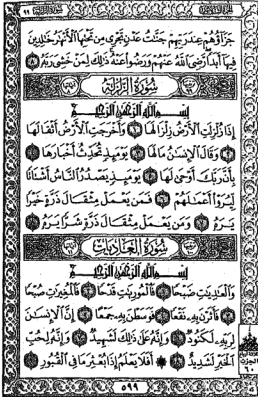 جَزَآؤُهُمْ عِندَ رَبِّهِمْ جَنَّٰتُ عَدْنٍ تَجْرِى مِن تَحْتِهَا ٱلْأَنْهَٰرُ خَٰلِدِينَ
فِيهَآ أَبَدًا رَّضِىَ ٱللَّهُ عَنْهُمْ وَرَضُوا۟ عَنْهُ ذَٰلِكَ لِمَنْ خَشِىَ رَبَّهُۥ ٨
سُورَةُ الزَّلْزَلَةِ
بِسْمِ ٱللَّهِ ٱلرَّحْمَٰنِ ٱلرَّحِيمِ
إِذَا زُلْزِلَتِ ٱلْأَرْضُ زِلْزَالَهَا ١ وَأَخْرَجَتِ ٱلْأَرْضُ أَثْقَالَهَا
٢ وَقَالَ ٱلْإِنسَٰنُ مَا لَهَا ٣ يَوْمَئِذٍ تُحَدِّثُ أَخْبَارَهَا ٤
بِأَنَّ رَبَّكَ أَوْحَىٰ لَهَا ٥ يَوْمَئِذٍ يَصْدُرُ ٱلنَّاسُ أَشْتَاتًا
لِّيُرَوْا۟ أَعْمَٰلَهُمْ ٦ فَمَن يَعْمَلْ مِثْقَالَ ذَرَّةٍ خَيْرًا
يَرَهُۥ ٧ وَمَن يَعْمَلْ مِثْقَالَ ذَرَّةٍ شَرًّا يَرَهُۥ ٨
سُورَةُ العَادِيَاتِ
بِسْمِ ٱللَّهِ ٱلرَّحْمَٰنِ ٱلرَّحِيمِ
وَٱلْعَٰدِيَٰتِ ضَبْحًا ١ فَٱلْمُورِيَٰتِ قَدْحًا ٢ فَٱلْمُغِيرَٰتِ صُبْحًا
٣ فَأَثَرْنَ بِهِۦ نَقْعًا ٤ فَوَسَطْنَ بِهِۦ جَمْعًا ٥ إِنَّ ٱلْإِنسَٰنَ
لِرَبِّهِۦ لَكَنُودٌ ٦ وَإِنَّهُۥ عَلَىٰ ذَٰلِكَ لَشَهِيدٌ ٧ وَإِنَّهُۥ لِحُبِّ
ٱلْخَيْرِ لَشَدِيدٌ ٨ ۞ أَفَلَا يَعْلَمُ إِذَا بُعْثِرَ مَا فِى ٱلْقُبُورِ ٩
٥٩٩